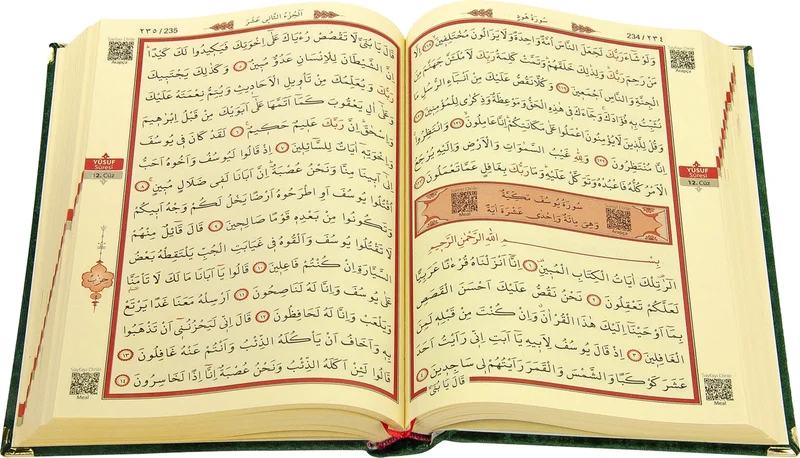 سُورَةُ هُودٍ
234 / ٢٣٤
Sayfayı Dinle
Arapça
وَلَوْ شَاءَ رَبُّكَ لَجَعَلَ النَّاسَ اُمَّةً وَاحِدَةً وَلَا يَزَالُونَ مُخْتَلِفِينَ ﴿١١٨﴾ اِلَّا
مَنْ رَحِمَ رَبُّكَ وَلِذٰلِكَ خَلَقَهُمْ وَتَمَّتْ كَلِمَةُ رَبِّكَ لَاَمْلَـَٔنَّ جَهَنَّمَ مِنَ
الْجِنَّةِ وَالنَّاسِ اَجْمَعِينَ ﴿١١٩﴾ وَكُلًّا نَقُصُّ عَلَيْكَ مِنْ اَنْبَاءِ الرُّسُلِ مَا
نُثَبِّتُ بِهِ فُؤٰادَكَ وَجَاءَكَ فِي هٰذِهِ الْحَقُّ وَمَوْعِظَةٌ وَذِكْرٰى لِلْمُؤْمِنِينَ ﴿١٢٠﴾
وَقُلْ لِلَّذِينَ لَا يُؤْمِنُونَ اعْمَلُوا عَلٰى مَكَانَتِكُمْ اِنَّا عَامِلُونَ ﴿١٢١﴾ وَانْتَظِرُوا
اِنَّا مُنْتَظِرُونَ ﴿١٢٢﴾ وَلِلّٰهِ غَيْبُ السَّمٰوَاتِ وَالْاَرْضِ وَاِلَيْهِ يُرْجَعُ
الْاَمْرُ كُلُّهُ فَاعْبُدْهُ وَتَوَكَّلْ عَلَيْهِ وَمَا رَبُّكَ بِغَافِلٍ عَمَّا تَعْمَلُونَ ﴿١٢٣﴾
YÛSUF
Sûresi
12. Cüz
سُورَةُ يُوسُفَ مَكِّيَّةٌ
وَهِيَ مِائَةٌ وَاِحْدٰى عَشْرَةَ اٰيَةً
بِسْمِ اللّٰهِ الرَّحْمٰنِ الرَّحِيمِ
الٓرٰ تِلْكَ اٰيَاتُ الْكِتَابِ الْمُبِينِ ﴿١﴾ اِنَّا اَنْزَلْنَاهُ قُرْءٰنًا عَرَبِيًّا
لَعَلَّكُمْ تَعْقِلُونَ ﴿٢﴾ نَحْنُ نَقُصُّ عَلَيْكَ اَحْسَنَ الْقَصَصِ
بِمَا اَوْحَيْنَا اِلَيْكَ هٰذَا الْقُرْاٰنَ وَاِنْ كُنْتَ مِنْ قَبْلِهِ لَمِنَ
الْغَافِلِينَ ﴿٣﴾ اِذْ قَالَ يُوسُفُ لِاَبِيهِ يَا اَبَتِ اِنِّي رَاَيْتُ اَحَدَ
عَشَرَ كَوْكَبًا وَالشَّمْسَ وَالْقَمَرَ رَاَيْتُهُمْ لِي سَاجِدِينَ ﴿٤﴾
قَالَ يَا بُنَيَّ
Sayfayı Dinle
Meal
٢٣٥ / 235
اَلْجُزْءُ الثَّانِي عَشَرَ
Sayfayı Dinle
Arapça
قَالَ يَا بُنَيَّ لَا تَقْصُصْ رُءْيَاكَ عَلٰى اِخْوَتِكَ فَيَكِيدُوا لَكَ كَيْدًا
اِنَّ الشَّيْطَانَ لِلْاِنْسَانِ عَدُوٌّ مُبِينٌ ﴿٥﴾ وَكَذٰلِكَ يَجْتَبِيكَ
رَبُّكَ وَيُعَلِّمُكَ مِنْ تَأْوِيلِ الْاَحَادِيثِ وَيُتِمُّ نِعْمَتَهُ عَلَيْكَ
وَعَلٰى اٰلِ يَعْقُوبَ كَمَا اَتَمَّهَا عَلٰى اَبَوَيْكَ مِنْ قَبْلُ اِبْرٰهِيمَ
وَاِسْحٰقَ اِنَّ رَبَّكَ عَلِيمٌ حَكِيمٌ ﴿٦﴾ لَقَدْ كَانَ فِي يُوسُفَ
وَاِخْوَتِهِ اٰيَاتٌ لِلسَّائِلِينَ ﴿٧﴾ اِذْ قَالُوا لَيُوسُفُ وَاَخُوهُ اَحَبُّ
اِلٰى اَبِينَا مِنَّا وَنَحْنُ عُصْبَةٌ اِنَّ اَبَانَا لَفِي ضَلَالٍ مُبِينٍ ﴿٨﴾
اقْتُلُوا يُوسُفَ اَوِ اطْرَحُوهُ اَرْضًا يَخْلُ لَكُمْ وَجْهُ اَبِيكُمْ
وَتَكُونُوا مِنْ بَعْدِهِ قَوْمًا صَالِحِينَ ﴿٩﴾ قَالَ قَائِلٌ مِنْهُمْ
لَا تَقْتُلُوا يُوسُفَ وَاَلْقُوهُ فِي غَيَابَتِ الْجُبِّ يَلْتَقِطْهُ بَعْضُ
السَّيَّارَةِ اِنْ كُنْتُمْ فَاعِلِينَ ﴿١٠﴾ قَالُوا يَا اَبَانَا مَا لَكَ لَا تَأْمَنَّا
عَلٰى يُوسُفَ وَاِنَّا لَهُ لَنَاصِحُونَ ﴿١١﴾ اَرْسِلْهُ مَعَنَا غَدًا يَرْتَعْ
وَيَلْعَبْ وَاِنَّا لَهُ لَحَافِظُونَ ﴿١٢﴾ قَالَ اِنِّي لَيَحْزُنُنِي اَنْ تَذْهَبُوا
بِهِ وَاَخَافُ اَنْ يَأْكُلَهُ الذِّئْبُ وَاَنْتُمْ عَنْهُ غَافِلُونَ ﴿١٣﴾
قَالُوا لَئِنْ اَكَلَهُ الذِّئْبُ وَنَحْنُ عُصْبَةٌ اِنَّا اِذًا لَخَاسِرُونَ ﴿١٤﴾
YÛSUF
Sûresi
12. Cüz
حزب
Sayfayı Dinle
Meal